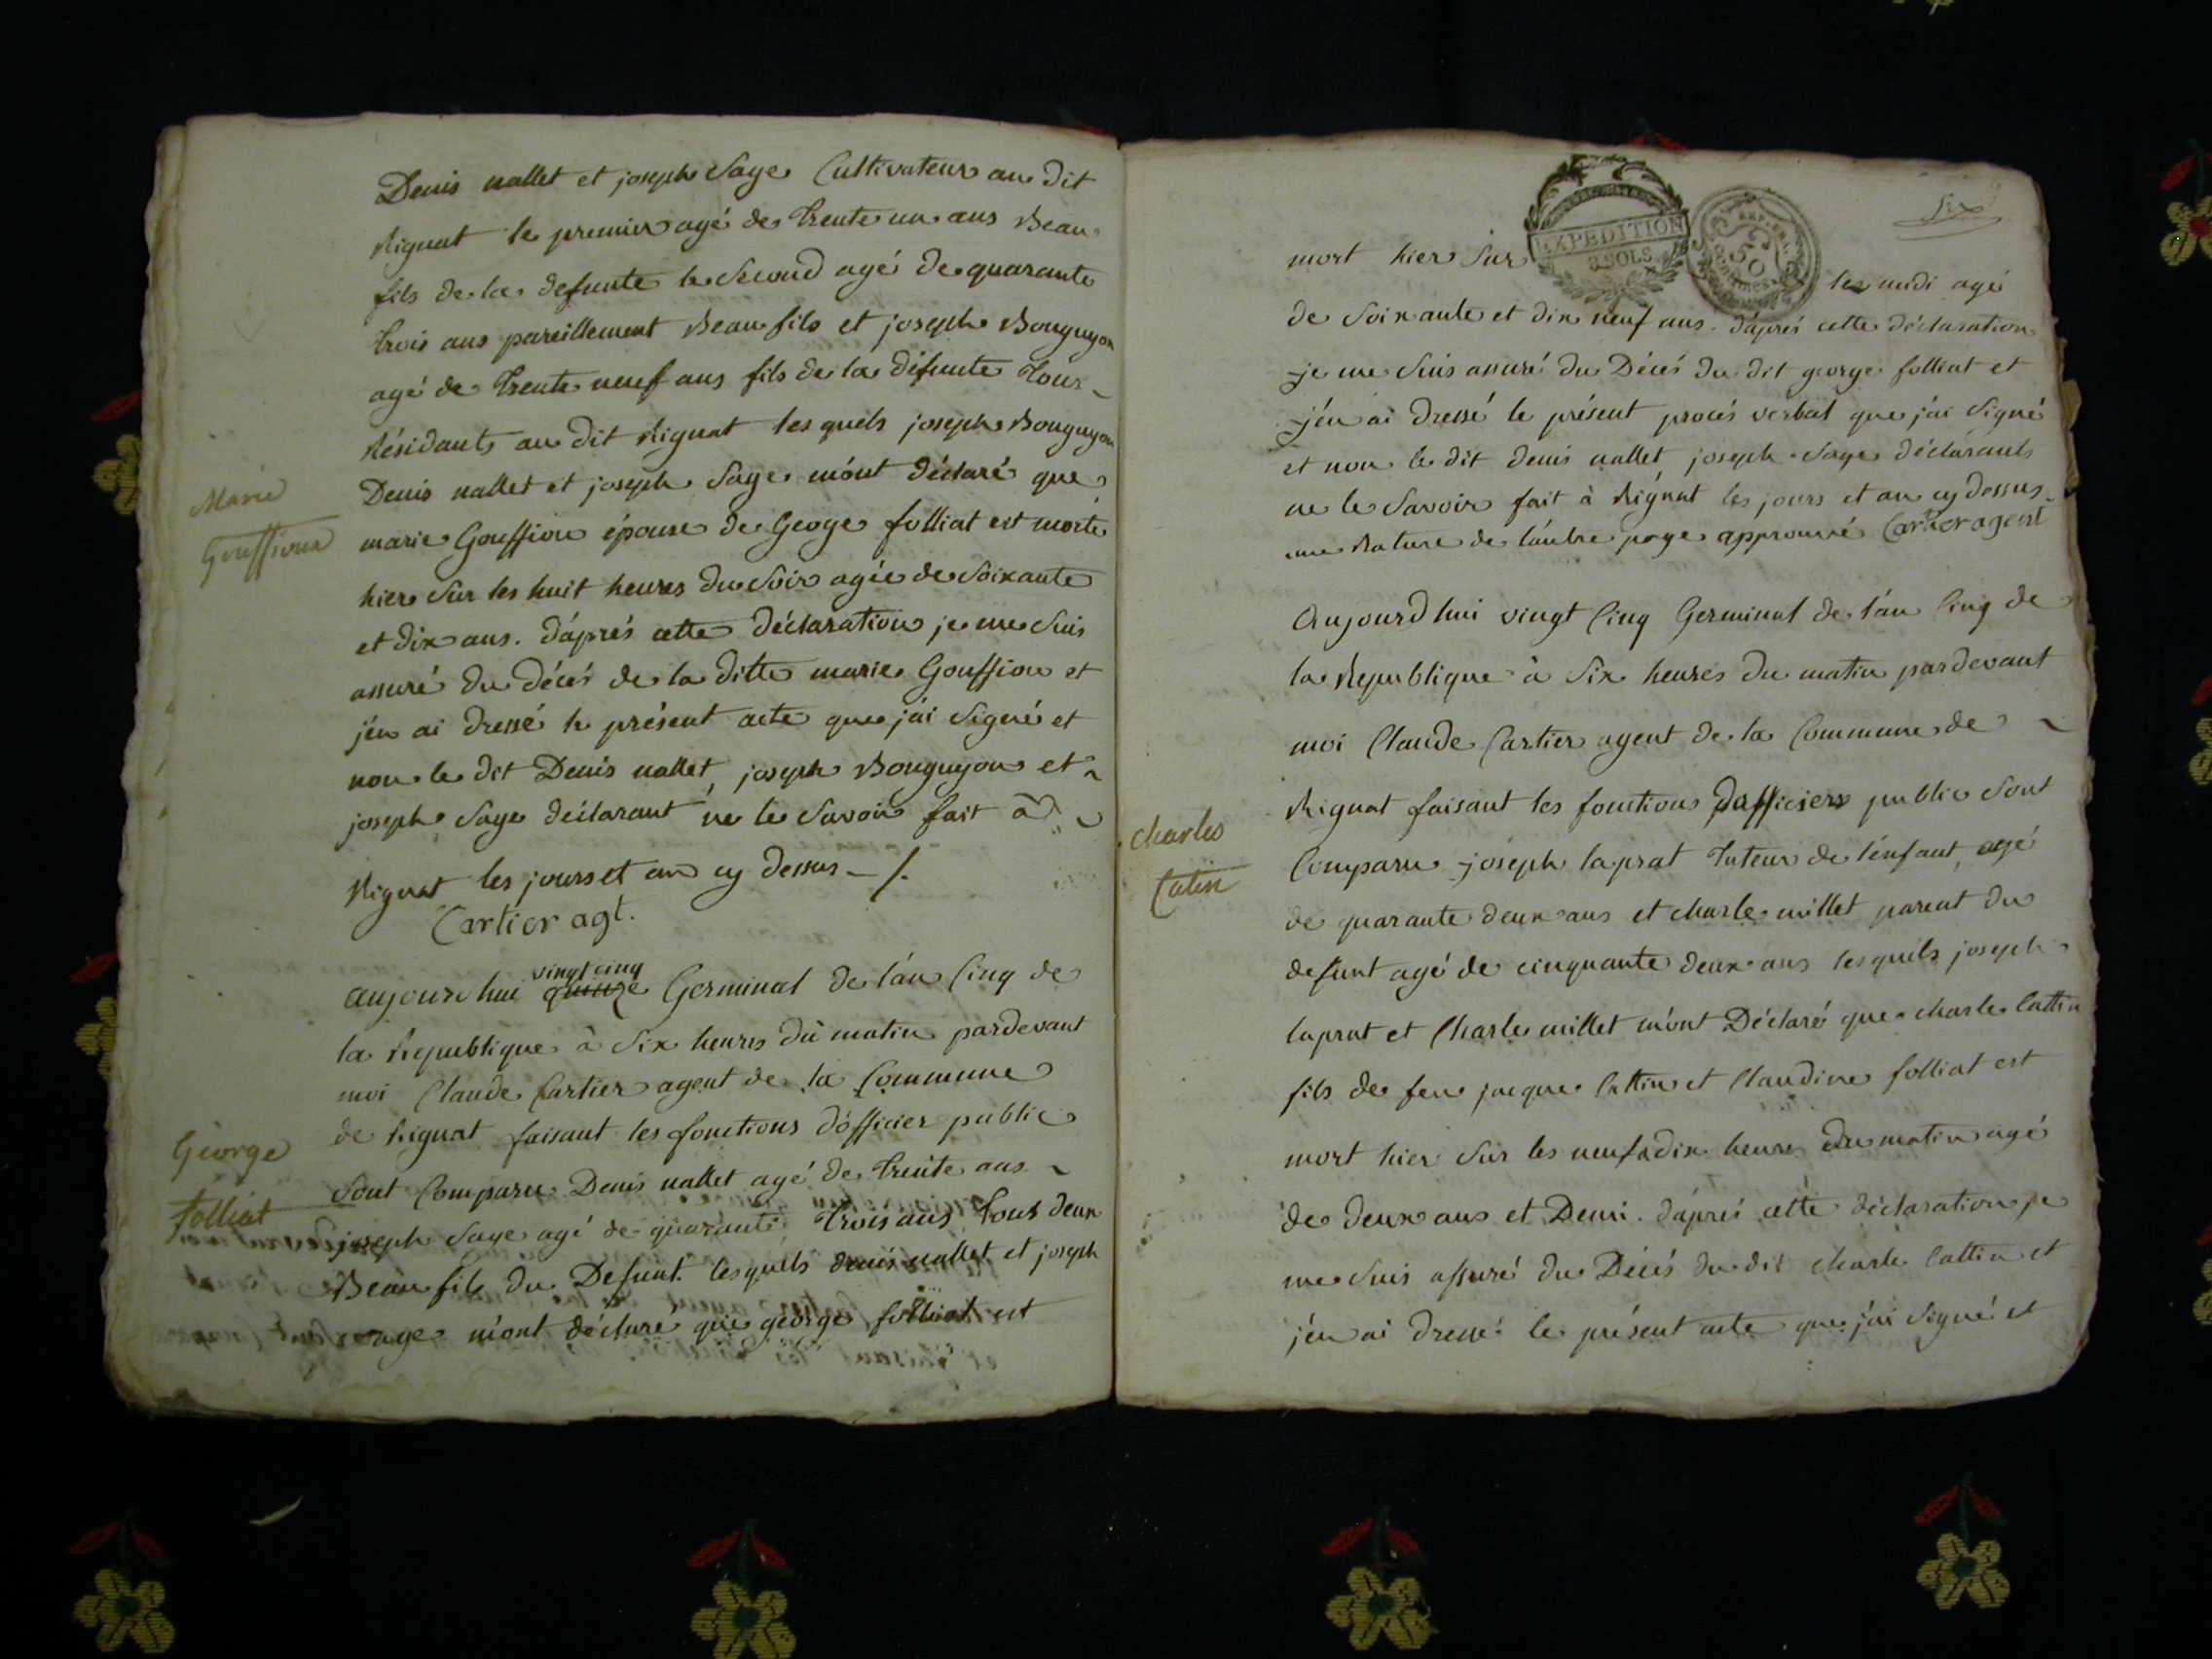 Denis nallet et joseph Sage Cultivateur au dit
Rignat le premier agé de trente un ans Beau
fils de la defunte le Second agé de quarante
trois ans pareillement Beau fils et joseph Bonguyon
agé de trente neuf ans fils de la défunte tous
Résidants au dit Rignat les quels joseph Bonguyon
Denis nallet et joseph Sage m'ont déclaré que
Marie
Gouffiona
marie Gouffion épouse de George folliat est morte
hier Sur les huit heures du Soir agée de Soixante
et dix ans. d'aprés cette déclaration je me Suis
assuré du décés de la ditte marie Gouffion et
j'en ai dressé le présent acte que j'ai Signé et
non le dit Denis nallet, joseph Bonguyon et
joseph Sage déclarant ne le Savoir fait à
Rignat les jours et an cy dessus
Cartier agt.
vingt cinq
aujourd hui quinze Germinal de l'an Cinq de
la Republique à Six heures du matin pardevant
moi Claude Cartier agent de la Commune
de Rignat faisant les fonctions d'officier public
George
folliat
Sont Comparu Denis nallet agé de trente ans
joseph Sage agé de quarante trois ans tous deux
Beau fils du Defunt lesquels denis nallet et joseph
age m'ont déclaré que george folliat est
Six
EXPEDITION
3 SOLS
50
mort hier Sur les midi agé
de Soixante et dix neuf ans. d'aprés cette déclaration
je me Suis assuré du Décés du dit george folliat et
j'en ai dressé le présent procés verbal que j'ai Signé
et non le dit denis nallet, joseph Sage déclarants
ne le Savoir fait à Rignat les jours et an cy dessus
une Rature de l'autre page approuvé Cartier agent
Aujourd hui vingt Cinq Germinal de l'an Cinq de
la Republique à Six heures du matin pardevant
moi Claude Cartier agent de la Commune de
Rignat faisant les fonctions d'officier public Sont
Charles
Catin
Comparu joseph laprat tuteur de l'enfant, agé
de quarante deux ans et charle millet parent du
defunt agé de cinquante deux ans lesquels joseph
laprat et Charle millet m'ont Déclaré que charle Cattin
fils de feu jacque Cattin et Claudine folliat est
mort hier Sur les neuf a dix heures du matin agé
de deux ans et Demi. d'aprés cette déclaration je
me Suis assuré du Décés du dit charle Cattin et
j'en ai dressé le présent acte que j'ai Signé et